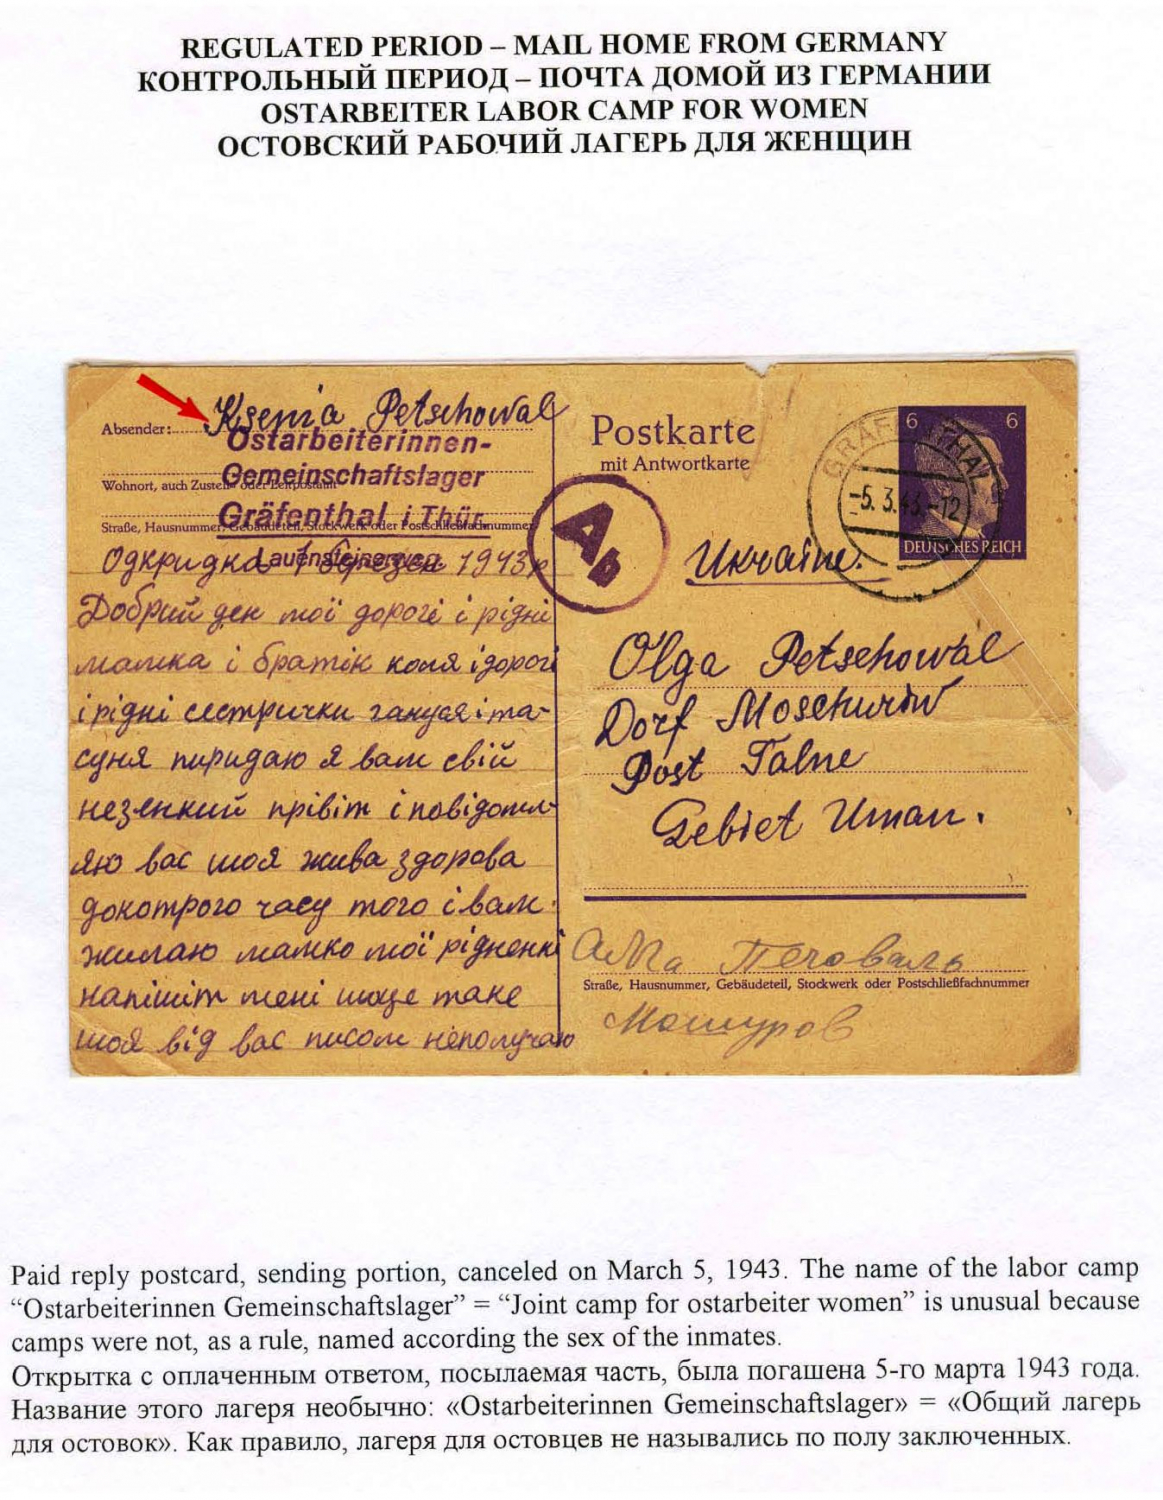 REGULATED PERIOD – MAIL HOME FROM GERMANY
КОНТРОЛЬНЫЙ ПЕРИОД – ПОЧТА ДОМОЙ ИЗ ГЕРМАНИИ
OSTARBEITER LABOR CAMP FOR WOMEN
ОСТОВСКИЙ РАБОЧИЙ ЛАГЕРЬ ДЛЯ ЖЕНЩИН
Absender: Ksenia Petschowal
Ostarbeiterinnen-
Wohnort, auch Zustell- oder Leitpostamt
Gemeinschaftslager
Gräfenthal i Thür.
Straße, Hausnummer, Gebäudeteil, Stockwerk oder Postschließfachnummer
Одкридка 1 березен 1943р
Добрий ден мої дорогі і рідні
мамка і братік коля ідорогі
і рідні сестрички гануся іта-
суня пиридаю я вам свій
незенкий прівіт і повідомл-
яю вас шоя жива здорова
докотрого часу того і вам
жилаю мамко мої рідненкі
напішіт мені шоце таке
шоя від вас писом неполучаю
Postkarte
mit Antwortkarte
Ab
GRÄFENTHAL
-5.3.43.-12
6 6
DEUTSCHES REICH
Ukraine.
Olga Petschowal
Dorf Moschuriw
Post Talne
Gebiet Uman.
Печоваль
Straße, Hausnummer, Gebäudeteil, Stockwerk oder Postschließfachnummer
Мошуров
Paid reply postcard, sending portion, canceled on March 5, 1943. The name of the labor camp
“Ostarbeiterinnen Gemeinschaftslager” = “Joint camp for ostarbeiter women” is unusual because
camps were not, as a rule, named according the sex of the inmates.
Открытка с оплаченным ответом, посылаемая часть, была погашена 5-го марта 1943 года.
Название этого лагеря необычно: «Ostarbeiterinnen Gemeinschaftslager» = «Общий лагерь
для остовок». Как правило, лагеря для остовцев не назывались по полу заключенных.